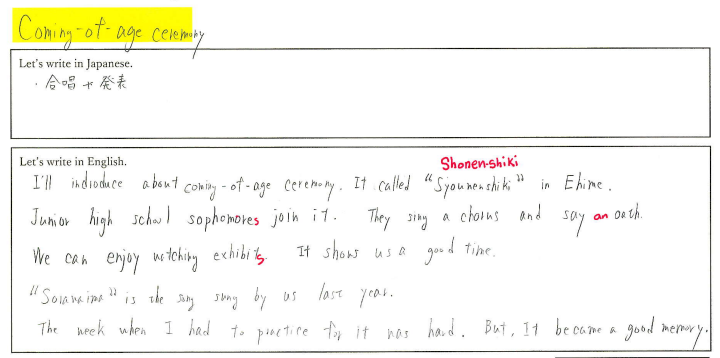 Coming-of-age ceremony
Let's write in Japanese.
・合唱や発表
Let's write in English.
Shonen-shiki
I'll indroduce about coming-of-age ceremony. It called "Syounenshiki" in Ehime.
Junior high school sophomores join it. They sing a chorus and say an oath.
We can enjoy watching exhibits. It shows us a good time.
"Soranaima" is the song sung by us last year.
The week when I had to practice for it was hard. But, It became a good memory.